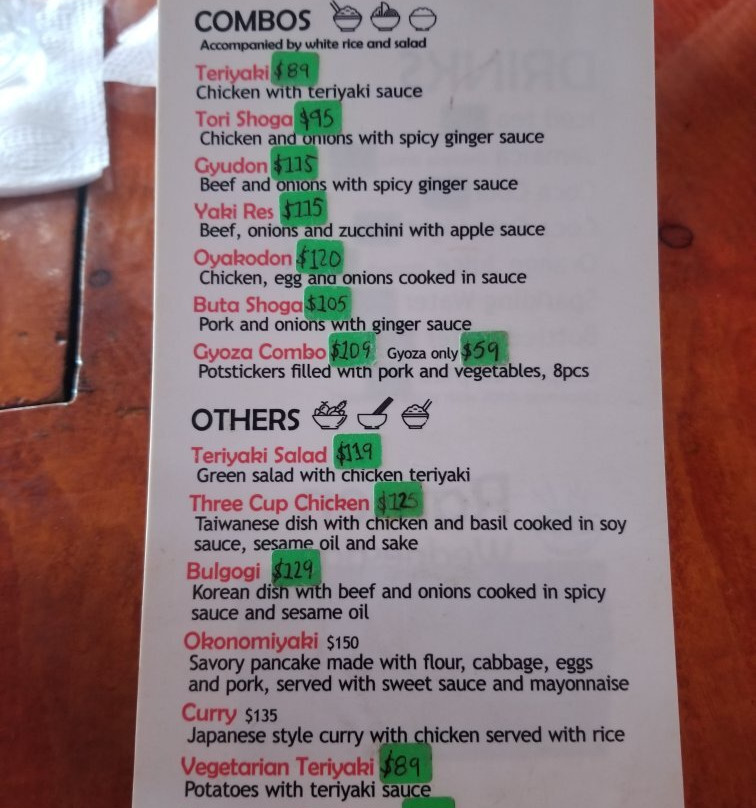 COMBOS
Accompanied by white rice and salad
Teriyaki $89
Chicken with teriyaki sauce
Tori Shoga $95
Chicken and onions with spicy ginger sauce
Gyudon $115
Beef and onions with spicy ginger sauce
Yaki Res $115
Beef, onions and zucchini with apple sauce
Oyakodon $120
Chicken, egg and onions cooked in sauce
Buta Shoga $105
Pork and onions with ginger sauce
Gyoza Combo $109 Gyoza only $59
Potstickers filled with pork and vegetables, 8pcs
OTHERS
Teriyaki Salad $119
Green salad with chicken teriyaki
Three Cup Chicken $125
Taiwanese dish with chicken and basil cooked in soy
sauce, sesame oil and sake
Bulgogi $129
Korean dish with beef and onions cooked in spicy
sauce and sesame oil
Okonomiyaki $150
Savory pancake made with flour, cabbage, eggs
and pork, served with sweet sauce and mayonnaise
Curry $135
Japanese style curry with chicken served with rice
Vegetarian Teriyaki $89
Potatoes with teriyaki sauce